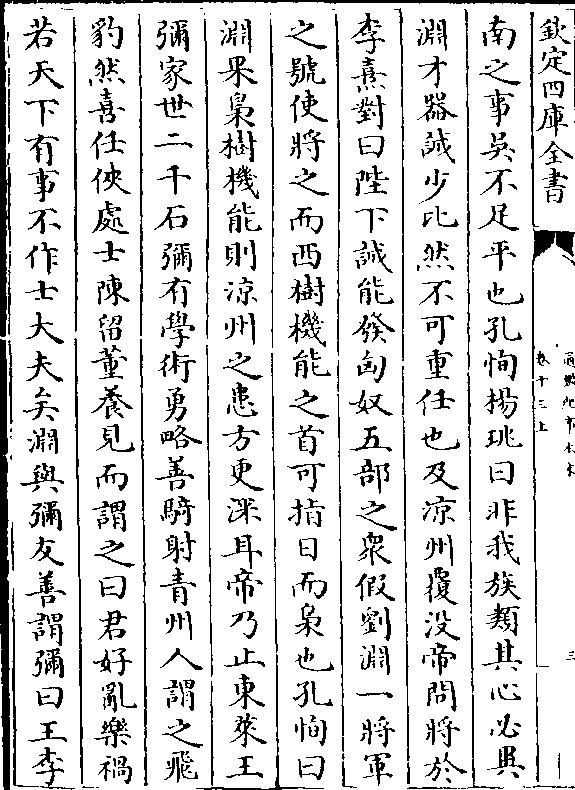 欽定四庫全書
通鑑紀事本末
卷十三上
三
南之事吳不足平也孔恂楊珧曰非我族類其心必異
淵才器誠少比然不可重任也及涼州覆没帝問將於
李憙對曰陛下誠能發匈奴五部之衆假劉淵一將軍
之號使將之而西樹機能之首可指日而梟也孔恂曰
淵果梟樹機能則涼州之患方更深耳帝乃止東萊王
彌家世二千石彌有學術勇略善騎射青州人謂之飛
豹然喜任俠處士陳留董養見而謂之曰君好亂樂禍
若天下有事不作士大夫矣淵與彌友善謂彌曰王李